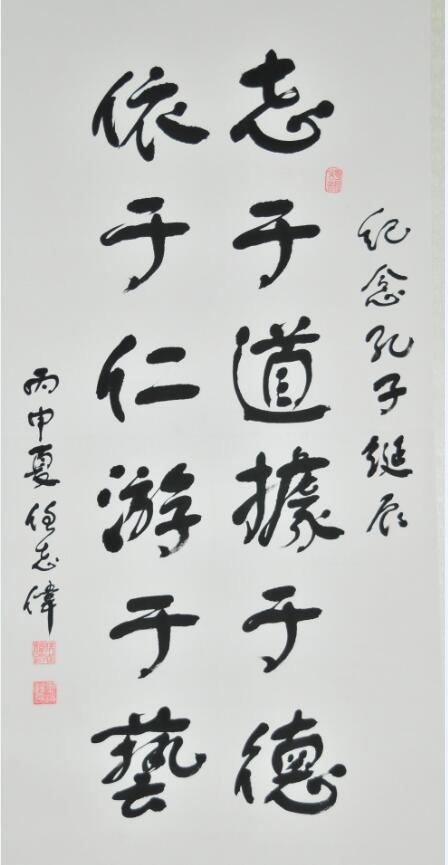 纪念孔子诞辰
志于道據于德
依于仁游于藝
丙申夏任志偉